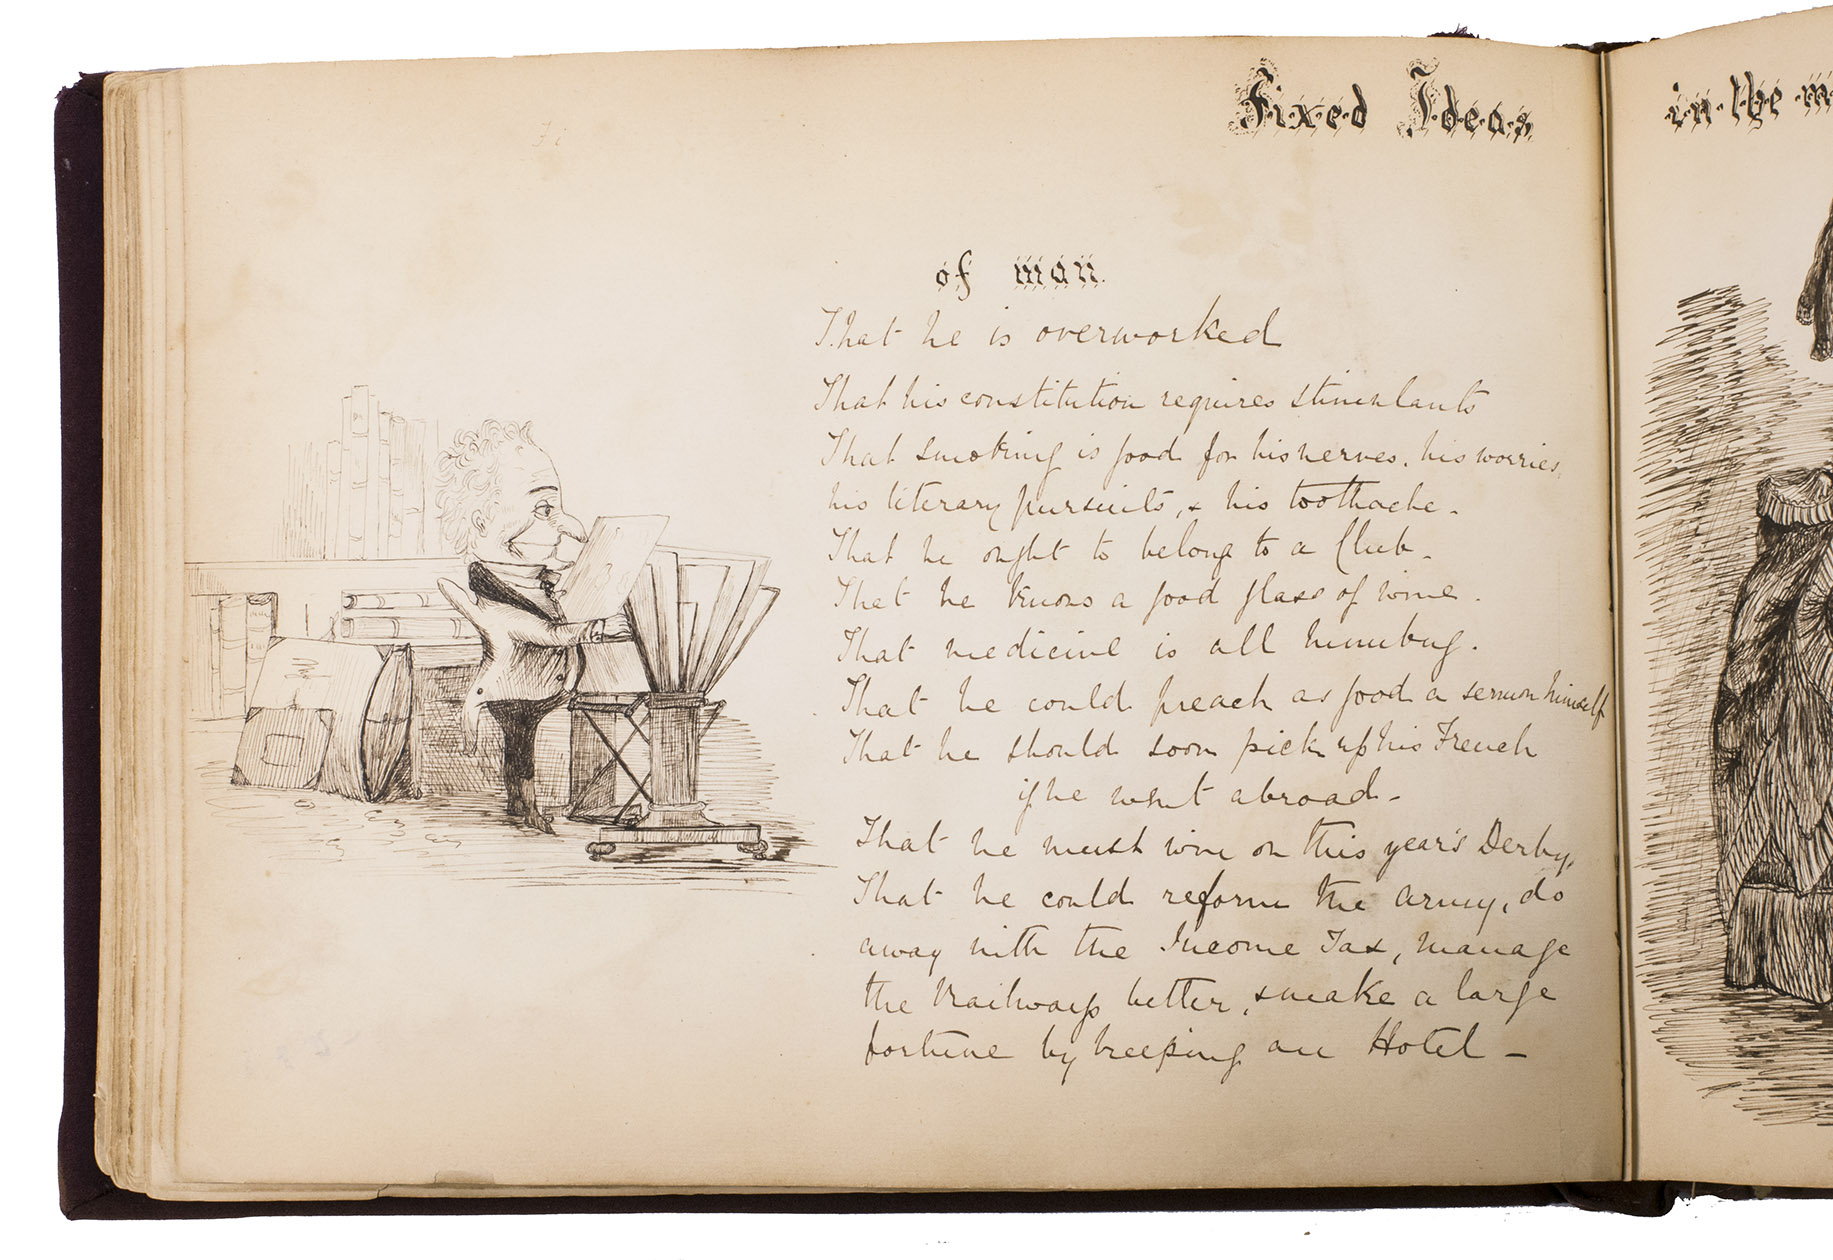 Fixed Ideas
in the
of man.
That he is overworked
That his constitution requires stimulants
That smoking is good for his nerves, his worries,
his literary pursuits, & his toothache.
That he ought to belong to a Club.
That he knows a good glass of wine.
That medicine is all humbug.
That he could preach as good a sermon himself
That he should soon pick up his French
if he went abroad.
That he must win on this year's Derby,
That he could reform the army, do
away with the Income Tax, manage
the Railways better, & make a large
fortune by keeping an Hotel -